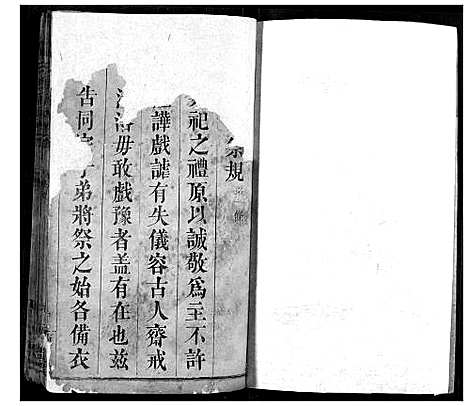 祭規
祀之禮原以誠敬爲主不許
譁戲謔有失儀容古人齋戒
毋敢戲豫者盖有在也兹
告同 子弟將祭之始各備衣